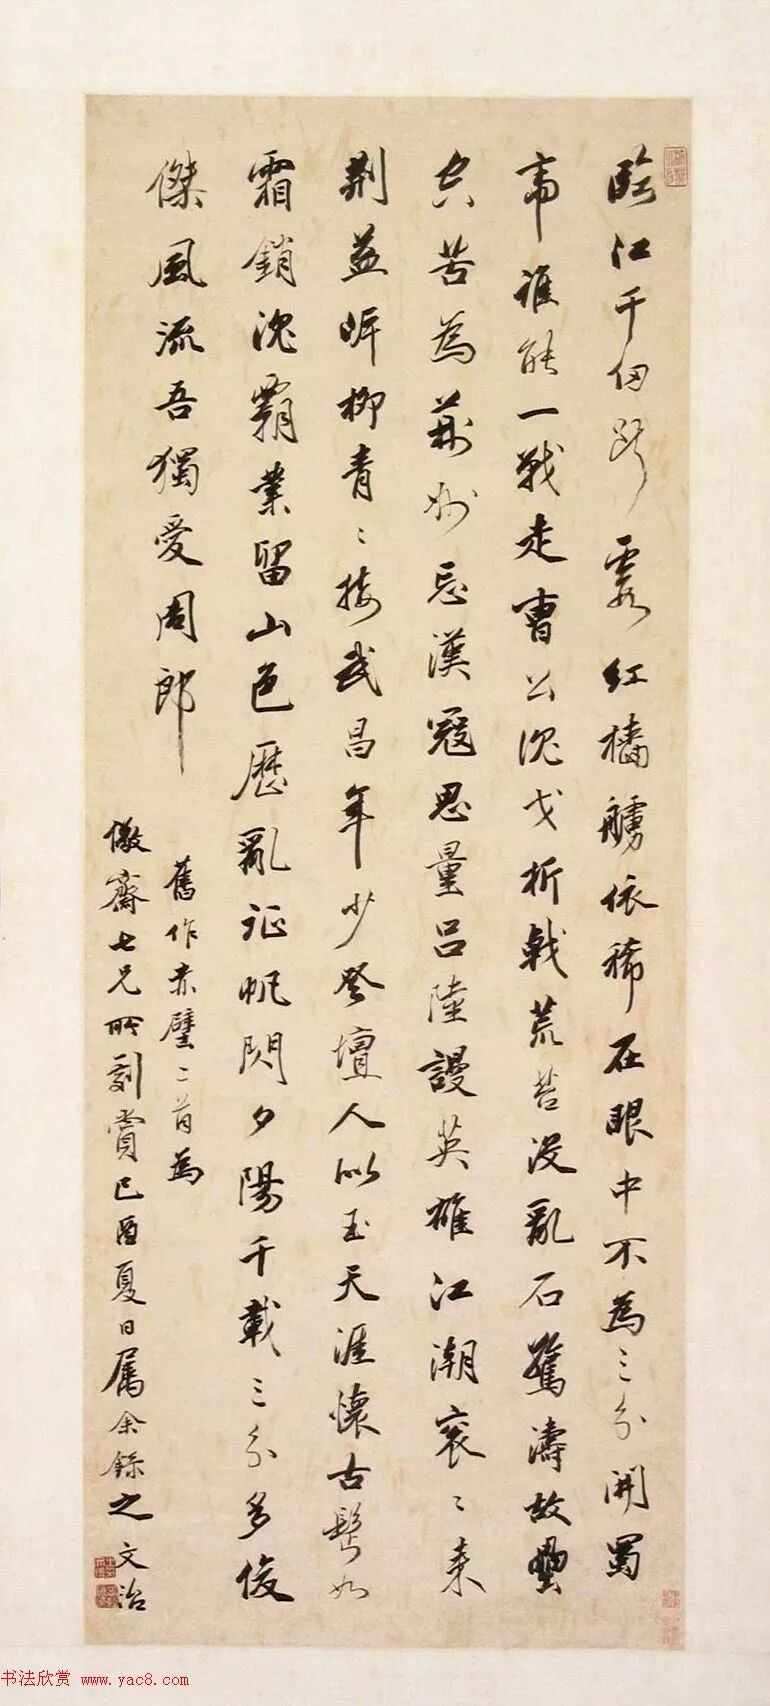 臨江千仞斷霞紅檣艣依稀在眼中不為三分開蜀
帝誰能一戰走曹公沈戈折戟荒苔沒亂石驚濤故壘
空苦為荊州忘漢寇思量呂陸謾英雄江潮衮〻來
荊益岸柳青〻接武昌年少登壇人似玉天涯懷古鬢如
霜銷沈霸業留山色歷亂征帆閃夕陽千載三分多俊
傑風流吾獨愛周郎
舊作赤壁二首為
儆齋七兄所刻賞己酉夏日屬余錄之文治
书法欣赏 www.yac8.com